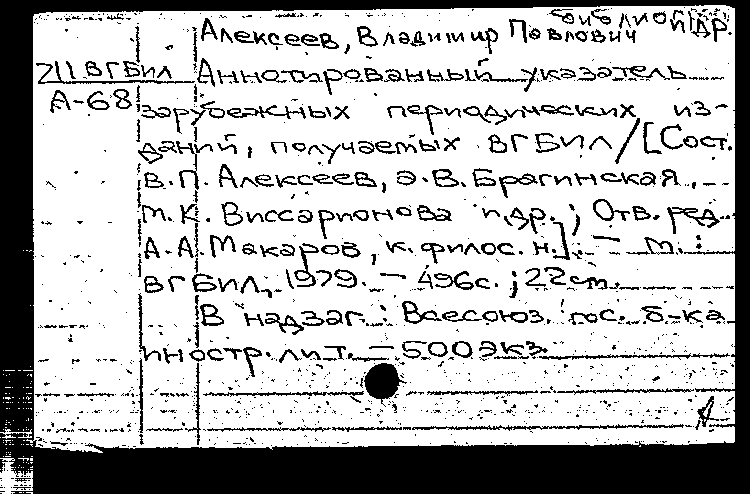 библиогр. и др.
Алексеев, Владимир Павлович
Z11 ВГБИЛ Аннотированный указатель
А-68 зарубежных периодических из-
даний, получаемых ВГБИЛ/[Сост.
В.П. Алексеев, Э.В. Брагинская,
М.К. Виссарионова и др.; Отв. ред.
А.А. Макаров, к. филос. н.]. — М.:
ВГБИЛ, 1979. — 496с.; 22см.
В надзаг.: Всесоюз. гос. б-ка
иностр. лит. — 500 экз.